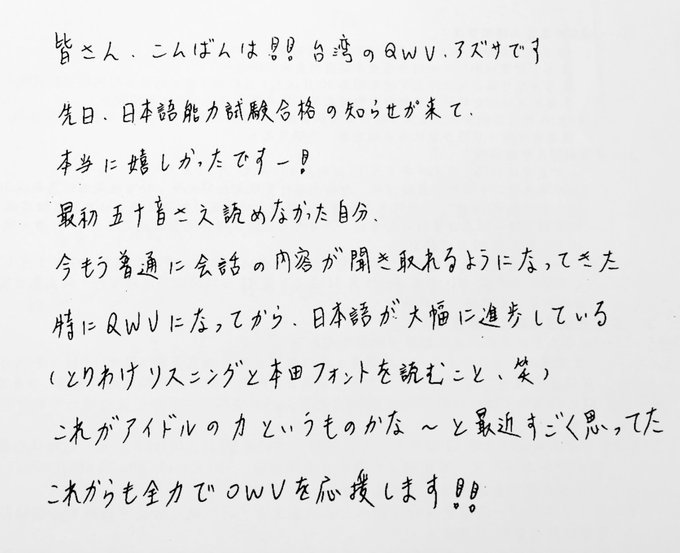 皆さん、こんばんは!!!! 台湾のQWV、アズサです
先日、日本語能力試験合格の知らせが来て、
本当に嬉しかったですー!
最初五十音さえ読めなかった自分、
今もう普通に会話の内容が聞き取れるようになってきた
特にQWVになってから、日本語が大幅に進歩している
(とりわけリスニングと本田フォントを読むこと、笑)
これがアイドルの力というものかな～と最近すごく思ってた
これからも全力でOWVを応援します!!